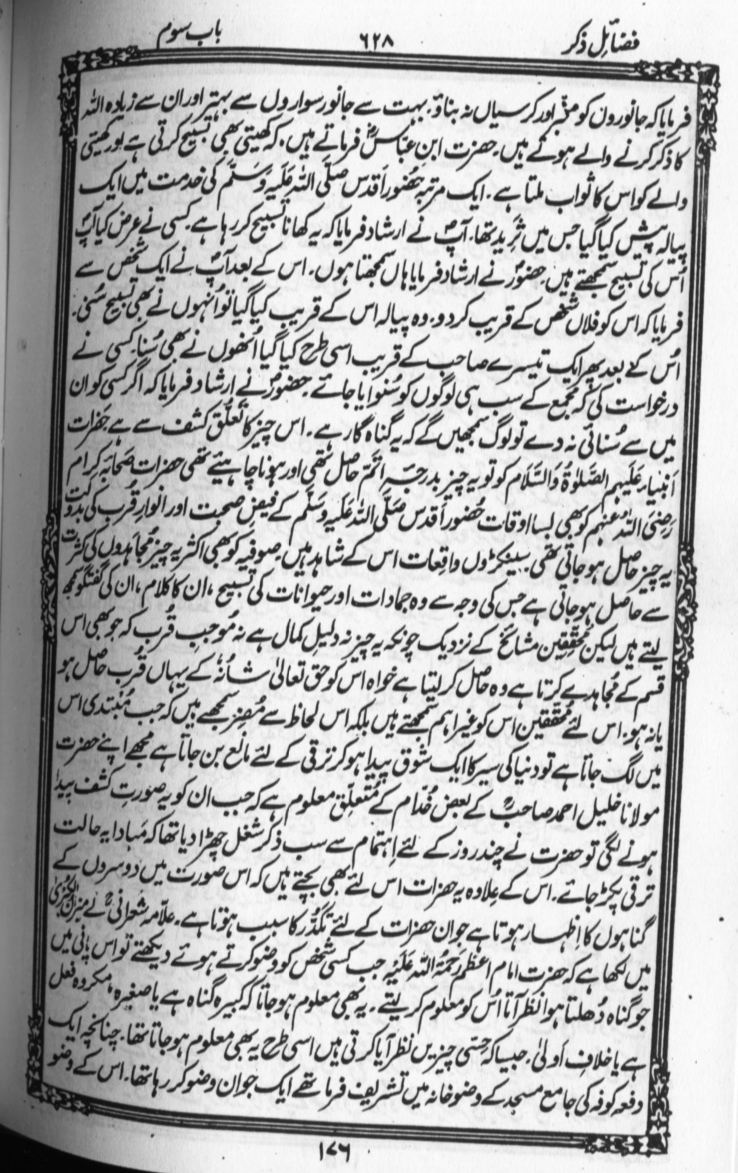 فضائل ذکر ۶۲۸ باب سوم
فرمایا کہ جانوروں کو منبر اور کرسیاں نہ بناؤ۔ بہت سے جانور سواروں سے بہتر اور ان سے زیادہ اللہ
کا ذکر کرنے والے ہوتے ہیں۔ حضرت ابن عباسؓ فرماتے ہیں، کہ کھیتی بھی تسبیح کرتی ہے اور کھیتی
والے کو اس کا ثواب ملتا ہے۔ ایک مرتبہ حضور اقدس صلی اللہ علیہ وسلم کی خدمت میں ایک
پیالہ پیش کیا گیا جس میں ثرید تھا۔ آپؐ نے ارشاد فرمایا کہ یہ کھانا تسبیح کر رہا ہے۔ کسی نے عرض کیا آپؐ
اس کی تسبیح سمجھتے ہیں۔ حضورؐ نے ارشاد فرمایا ہاں سمجھتا ہوں۔ اس کے بعد آپؐ نے ایک شخص سے
فرمایا کہ اس کو فلاں شخص کے قریب کر دو۔ وہ پیالہ اس کے قریب کیا گیا تو انہوں نے بھی تسبیح سنی۔
اس کے بعد پھر ایک تیسرے صاحب کے قریب اسی طرح کیا گیا انھوں نے بھی سنا۔ کسی نے
درخواست کی کہ مجمع کے سب ہی لوگوں کو سنوایا جائے۔ حضورؐ نے ارشاد فرمایا کہ اگر کسی کو ان
میں سے سنائی نہ دے تو لوگ سمجھیں گے کہ یہ گناہ گار ہے۔ اس چیز کا تعلق کشف سے ہے حضرات
انبیاء علیہم الصلوٰۃ والسلام کو تو یہ چیز بدرجہ اتم حاصل تھی اور ہونا چاہیئے تھی حضرات صحابہ کرام
رضی اللہ عنہم کو بھی بسا اوقات حضور اقدس صلی اللہ علیہ وسلم کے فیض صحبت اور انوار قرب کی بدولت
یہ چیز حاصل ہو جاتی تھی سینکڑوں واقعات اس کے شاہد ہیں۔ صوفیہ کو بھی اکثر یہ چیز مجاہدوں کی کثرت
سے حاصل ہو جاتی ہے جس کی وجہ سے وہ جمادات اور حیوانات کی تسبیح، ان کا کلام، ان کی گفتگو سمجھ
لیتے ہیں لیکن محققین مشائخ کے نزدیک چونکہ یہ چیز نہ دلیل کمال ہے نہ موجب قرب کہ جو بھی اس
قسم کے مجاہدے کرتا ہے وہ حاصل کر لیتا ہے خواہ اس کو حق تعالیٰ شانہٗ کے یہاں قرب حاصل ہو
یا نہ ہو۔ اس لئے محققین اس کو غیر اہم سمجھتے ہیں بلکہ اس لحاظ سے مضر سمجھتے ہیں کہ جب مبتدی اس
میں لگ جاتا ہے تو دنیا کی سیر کا ایک شوق پیدا ہو کر ترقی کے لئے مانع بن جاتا ہے مجھے اپنے حضرت
مولانا خلیل احمد صاحبؒ کے بعض خدام کے متعلق معلوم ہے کہ جب ان کو یہ صورت کشف پیدا
ہونے لگی تو حضرت نے چند روز کے لئے اہتمام سے سب ذکر شغل چھڑا دیا تھا کہ مبادا یہ حالت
ترقی پکڑ جائے۔ اس کے علاوہ یہ حضرات اس لئے بھی بچتے ہیں کہ اس صورت میں دوسروں کے
گناہوں کا اظہار ہوتا ہے جو ان حضرات کے لئے تکدر کا سبب ہوتا ہے۔ علامہ شعرانیؒ نے میزان الکبریٰ
میں لکھا ہے کہ حضرت امام اعظم رحمۃ اللہ علیہ جب کسی شخص کو وضو کرتے ہوئے دیکھتے تو اس پانی میں
جو گناہ دھلتا ہوا نظر آتا اس کو معلوم کر لیتے۔ یہ بھی معلوم ہو جاتا کہ کبیرہ گناہ ہے یا صغیرہ، مکروہ فعل
ہے یا خلاف اولیٰ۔ جیسا کہ حسی چیزیں نظر آیا کرتی ہیں اسی طرح یہ بھی معلوم ہو جاتا تھا۔ چنانچہ ایک
دفعہ کوفہ کی جامع مسجد کے وضو خانہ میں تشریف فرما تھے ایک جوان وضو کر رہا تھا۔ اس کے وضو
۱۷۶